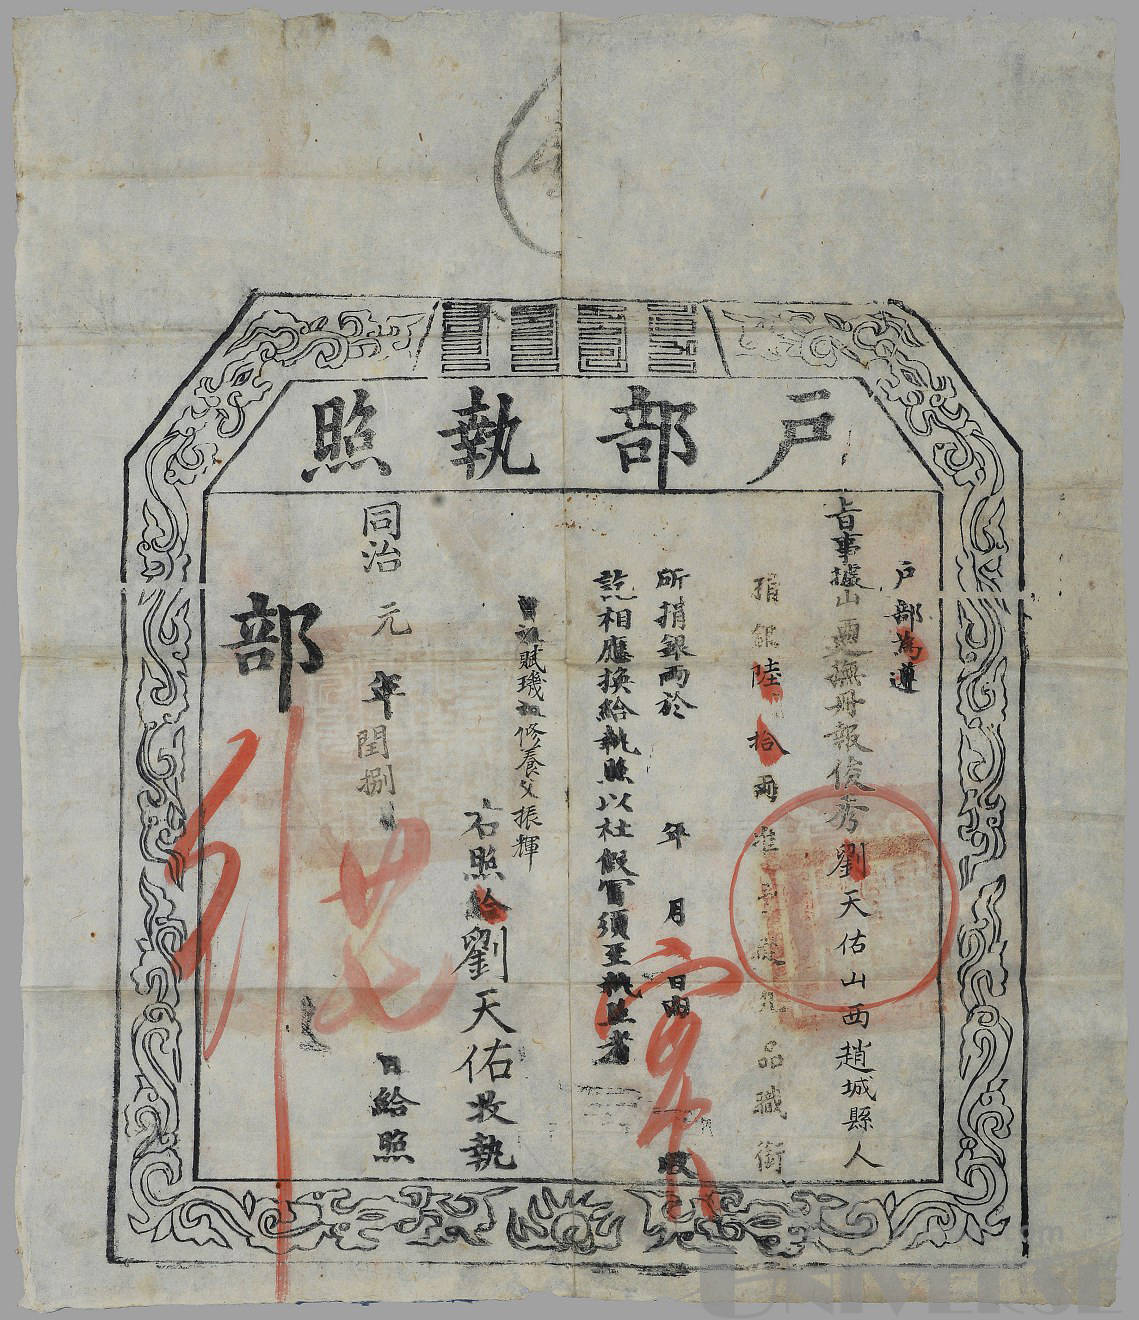 戶部執照
戶部為遵
旨事據山西巡撫冊報俊秀劉天佑山西趙城縣人
捐銀陸拾兩准 品職銜
所捐銀兩於 年 月 日
訖相應換給執照以杜假冒須至執照者
曾祖賦璣祖修養父振輝
右照給劉天佑收執
同治元年閏捌 廿七日給照
部
UNIVERSE